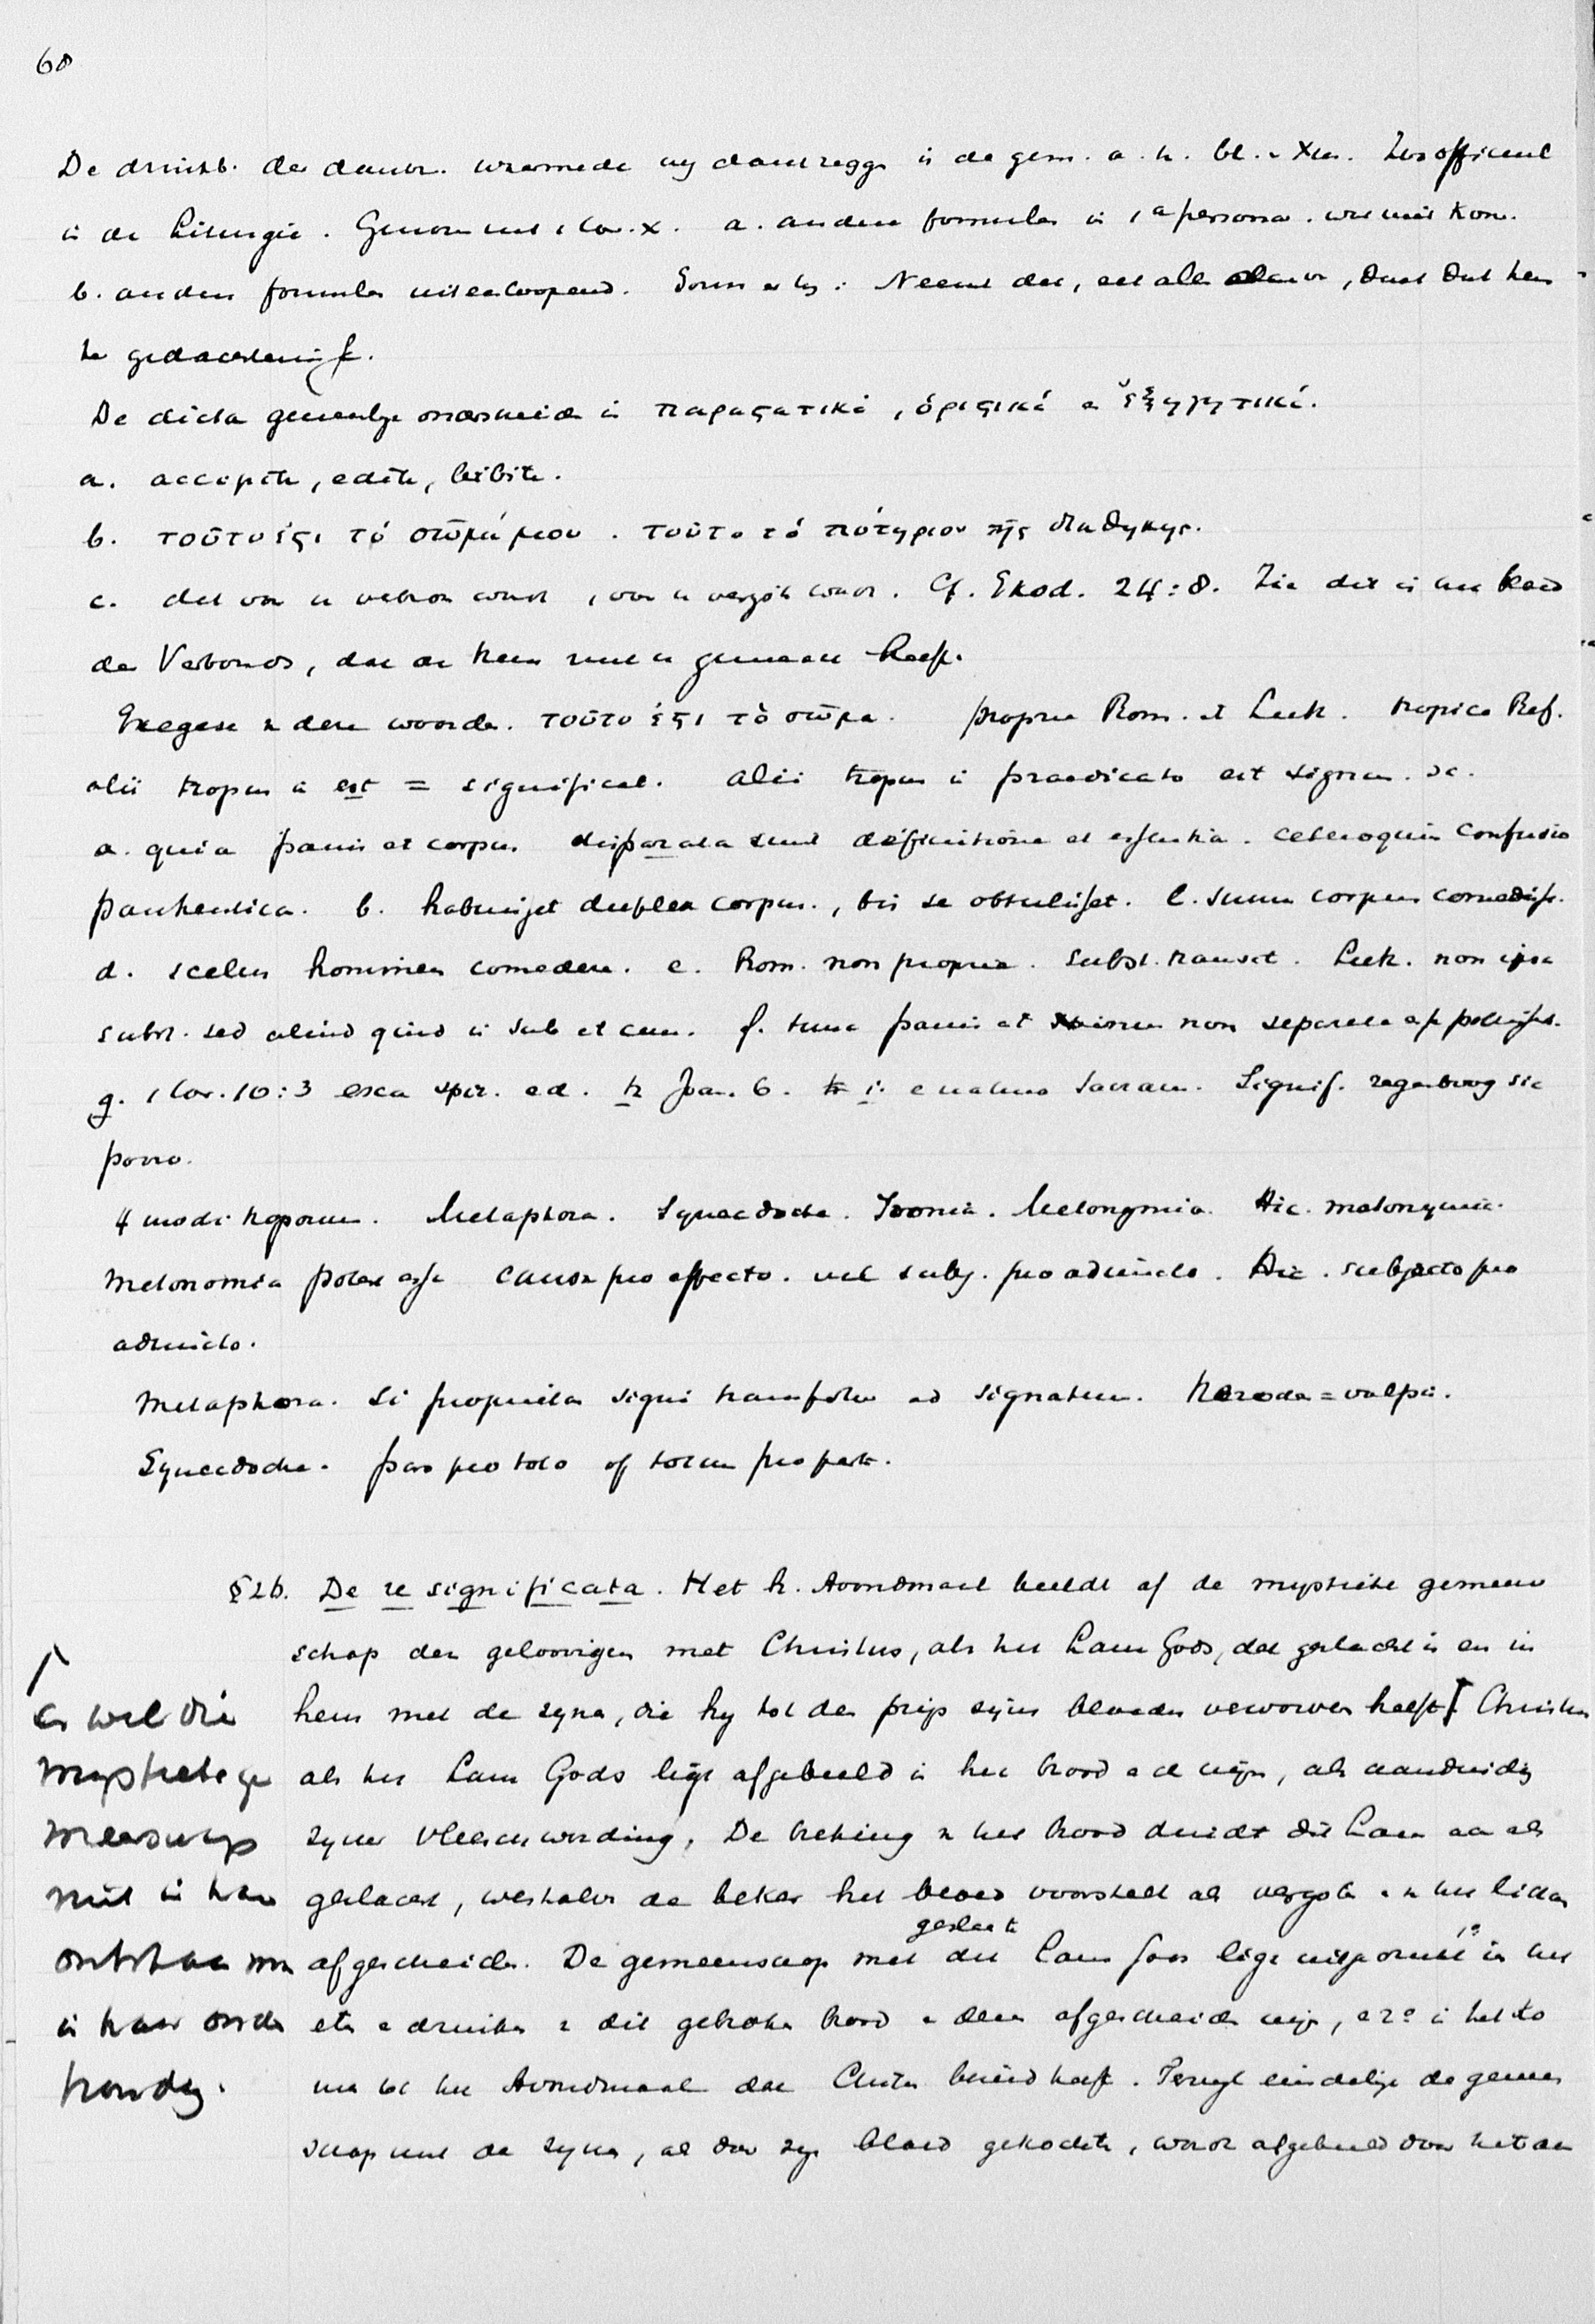 68
De drinkb. der dankz. waarmede wy dankzegge is de gem. a. h. bl. v Xus. Zoo officieel
in de Liturgie. Genomen uit 1 Cor. X. a. andere formules in 1a persona. wat niet kon.
b. andere formules uiteenloopend. Neemt dat, eet alle daarvan, doet dat
te gedachtenisse.
De dicta gemeenlyk onderscheiden in παραϛατικά, ὁριϛικά e ἐξηγητικά.
a. accipite, edite, bibite.
b. τοῦτο ἐϛι τό σῶμά μου. τοῦτο τό ποτηριον τῆς διαθηκης.
c. dat voor u gebroken wordt, voor u vergoten wordt. Cf. Exod. 24:8. Zie dit is het bloed
des Verbonds, dat de Heer met u gemaakt heeft.
Exegese v deze woorden. τοῦτο ἐϛι τὸ σῶμα. proprie Rom. et Luth. tropice Ref.
alii tropus in est = significat. alii tropus in praedicato est signum. sc.
a. quia panis et corpus disparata sunt definitione et essentia. ceteroquin confusio
pantheistica. b. habuisset duplex corpus, bis se obtulisset. c. suum corpus comedisse.
d. scelus hominem comedere. e. Rom. non proprie. subst. transit. Luth. non ipsa
subst. sed aliud quid in sub et cum. f. tunc panis et vinum non separata appellasset.
g. 1 Cor. 10:3 esca spir. ed. h Joan. 6. i: e natura sacram. Signif. regenboog sic
porro.
4 modi troporum. Metaphora. Synecdoche. Ironia. Metonymia. Hic. metonymia.
Metonomia potest esse causa pro effecto. vel subj. pro adjuncto. Hic. subjecto pro
adjuncto.
Metaphora. Si proprietas signi transfertur ad signatum. Herodes = vulpis.
Synecdoche. pars pro toto of totum pro parte.
§2b. De re significata. Het h. Avondmaal beeldt af de mystieke gemeen
schap der geloovigen met Christus, als het Lam Gods, dat geslacht is en in
hem met de zyne, die hy tot den prijs zijns bloeds verworven heeft ⌈ Christus
als het Lam Gods ligt afgebeeld in het brood e d wijn, als aanduiding
zyner vleeschwording. De breking v het brood duidt dit Lam aan als
geslacht, weshalve de beker het bloed voorstelt als vergoten e v het lichaam
afgescheiden. De gemeenschap met dit geslachte Lam Gods ligt uitgedrukt 1o in het
eten e drinken v dit gebroken brood e dezen afgescheiden wijn, e 2o in het ko
men tot het Avondmaal dat Christus bereid heeft. Terwyl eindelijk de gemeen
schap met de zynen, als door zyn bloed gekochte, wordt afgebeeld door het aan
⌈
en wel die
mystieke ge
meenschap
niet in haar
ontstaan mr
in haar onder
houding.